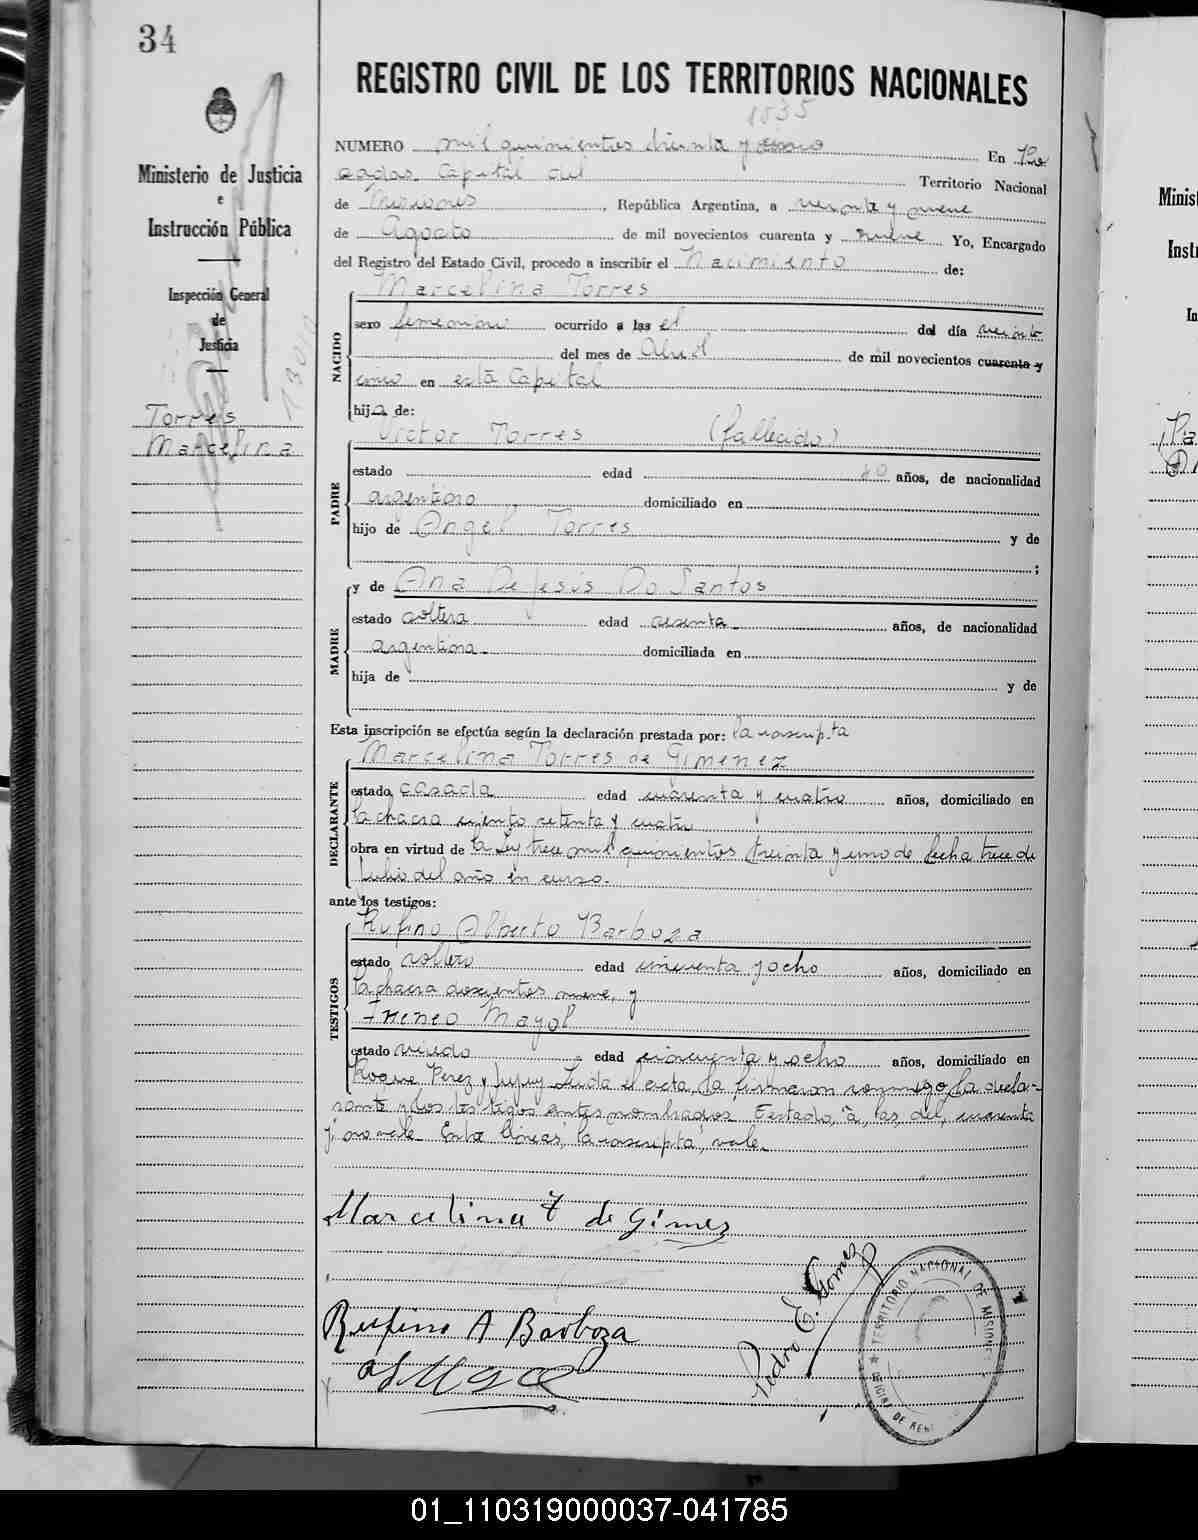 34
REGISTRO CIVIL DE LOS TERRITORIOS NACIONALES
1535
Ministerio de Justicia
e
Instrucción Pública
Inspección General
de
Justicia
Torres
Marcelina
NUMERO mil quinientos treinta y cinco En Po
sadas Capital del Territorio Nacional
de Misiones, República Argentina, a veinte y nueve
de Agosto de mil novecientos cuarenta y nueve Yo, Encargado
del Registro del Estado Civil, procedo a inscribir el Nacimiento de:
Marcelina Torres
NACIDO
sexo femenino ocurrido a las el del día
del mes de Abril de mil novecientos cuarenta y
cinco en esta Capital
hija de:
Victor Torres (fallecido)
PADRE
estado edad años, de nacionalidad
argentino domiciliado en
hijo de Angel Torres y de
;
MADRE
y de Ana De Jesús Do Santos
estado soltera edad sesenta años, de nacionalidad
argentina domiciliada en
hija de y de
Esta inscripción se efectúa según la declaración prestada por: la inscripta
Marcelina Torres de Gimenez
DECLARANTE
estado casada edad cuarenta y cuatro años, domiciliado en
la chacra ciento setenta y cuatro
obra en virtud de la Ley trece mil quinientos treinta y uno de fecha trece de
Julio del año en curso.
ante los testigos:
TESTIGOS
Rufino Alberto Barboza
estado soltero edad cincuenta y ocho años, domiciliado en
la chacra doscientos nueve, y
Ireneo Mayol
estado viudo edad cincuenta y ocho años, domiciliado en
Roque Perez y Jujuy Leida el acta, la firmaron conmigo, la decla-
rante y los testigos antes nombrados. Testado, "a, las, del, cuarenta
y" no vale. Entre líneas, "la inscripta", vale.
Marcelina T de Gimez
Rufino A Barboza
Pedro E. Gomez
TERRITORIO NACIONAL DE MISIONES
01_110319000037-041785